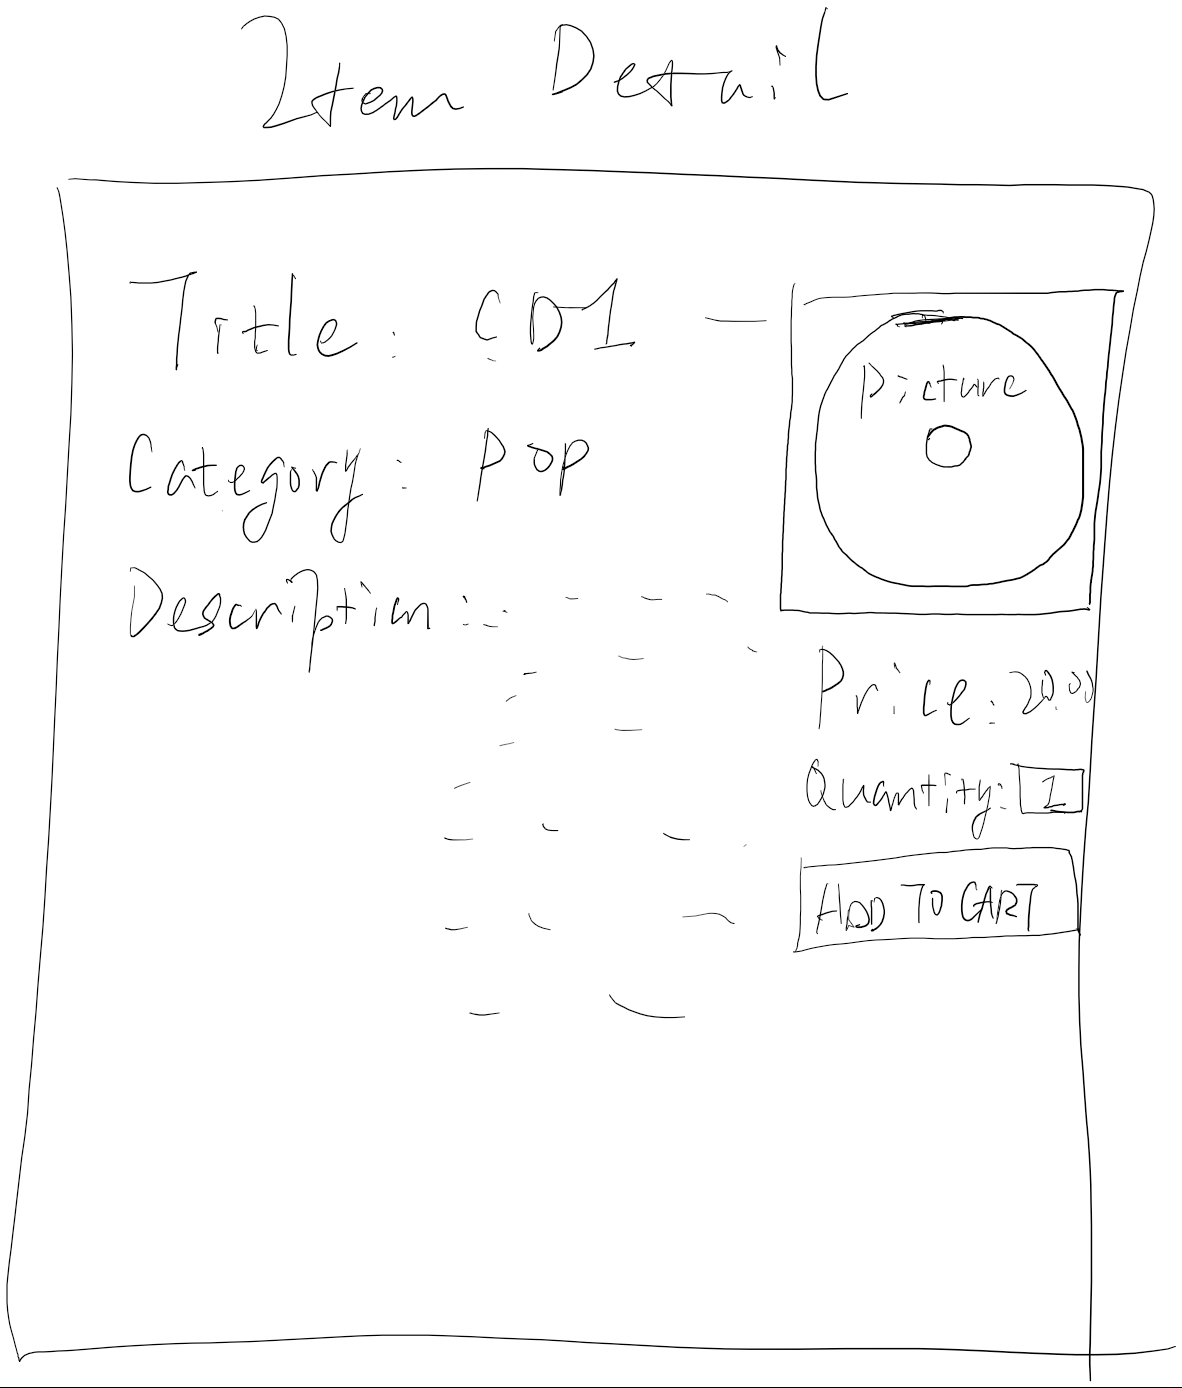 Item Detail
Title: CD1
Category: Pop
Description:
Picture
Price: 20.00
Quantity: 1
ADD TO CART